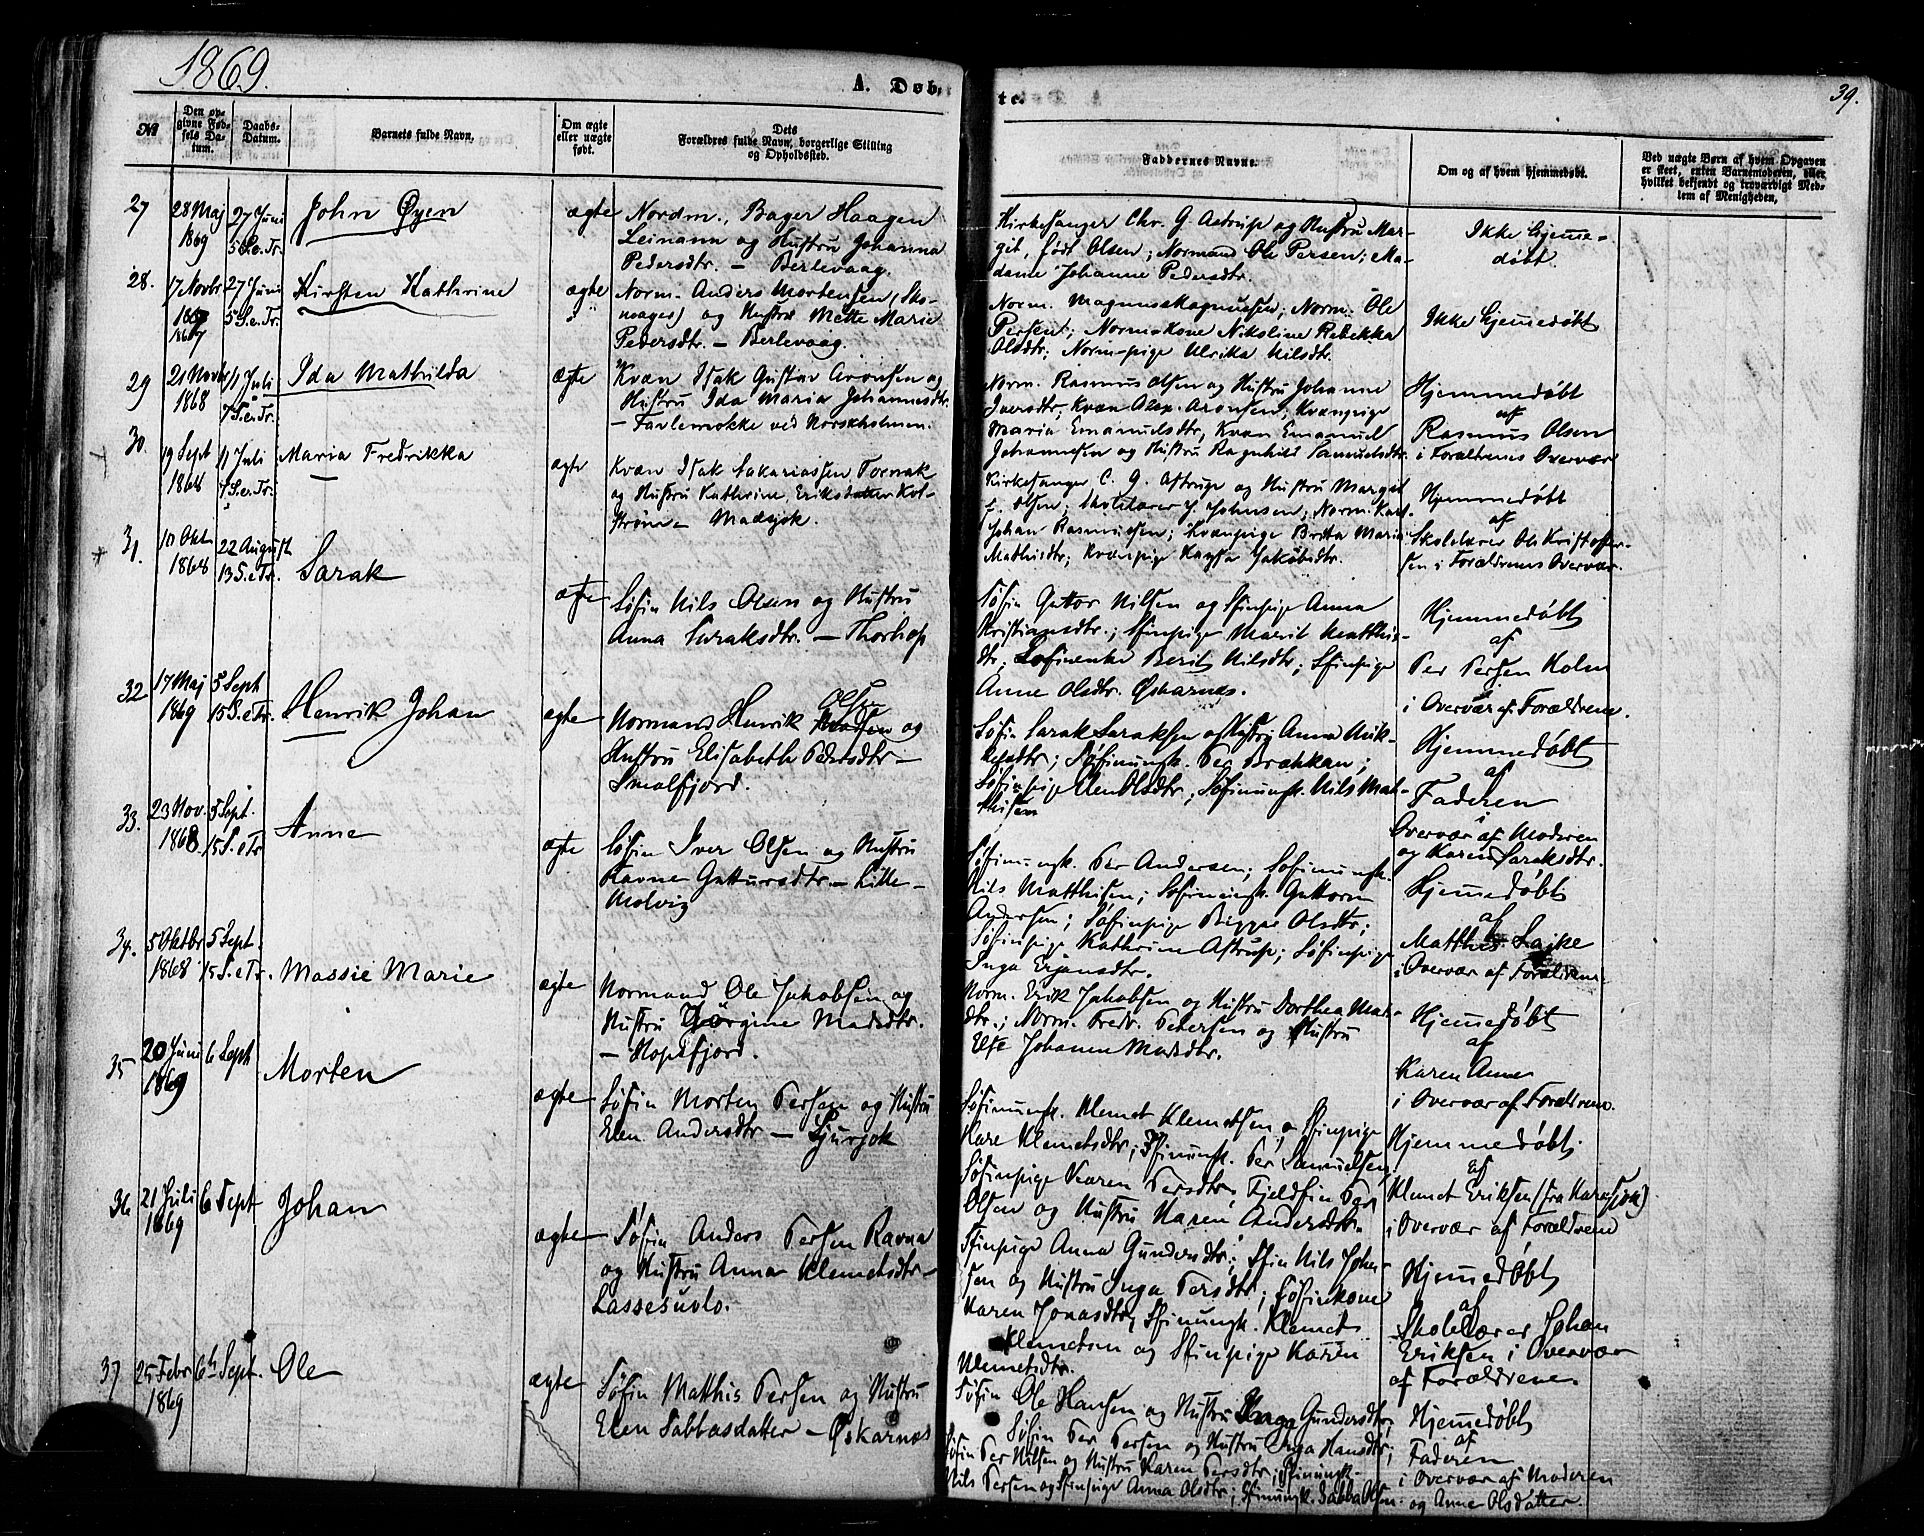 1869.
A. Døb
te.
39.
№
Den opgivne Fødsels Datum.
Daabs-Datum.
Barnets fulde Navn.
Om ægte eller uægte født.
Dets Forældres fulde Navn, borgerlige Stilling og Opholdssted.
Faddernes Navne.
Om og af hvem hjemmedøbt.
Ved uægte Børn af hvem Opgaven er skeet, enten Barnemoderen, eller hvilket bekjendt og troværdigt Medlem af Menigheden.
27
28 Maj 1869
27 Juni 5 S. e. Tr.
John Øyen
ægte
Nordm., Bager Haagen
Leinann og Hustru Johanna
Pedersdtr. — Berlevaag.
Kirkesanger Chr. G. Astrup og Hustru Mar-
git, født Olsen; Normand Ole Persen; Ma-
dame Johanne Pedersdtr.
Ikke hjemme-
døbt.
28.
17 Novbr 1867
27 Juni 5 S. e. Tr.
Kirsten Kathrine
ægte
Norm. Anders Mortensen (Sko-
maager) og Hustru Mette Marie
Pedersdtr. — Berlevaag.
Norm. Magnus Magnusen; Norm. Ole
Persen; Norm-kone Nikoline Rebekka
Olsdtr; Norm-pige Ulrika Nilsdtr.
Ikke hjemmedøbt
29
21 Novbr 1868
11 Juli 7 S. e. Tr.
Ida Mathilda
ægte
Kvæn Isak Gustav Aronsen og
Hustru Ida Maria Johannesdtr.
— Favlemokke ved Norskholmen.
Norm. Rasmus Olsen og Hustru Johanne
Iversdtr, Kvæn Alex. Aronsen, Kvænpige
Maria Emanuelsdtr, Kvæn Emanuel
Johannesen og Hustru Ragnhild Samuelsdtr.
Hjemmedøbt
af
Rasmus Olsen
i Forældrenes Overvær
30.
19 Sept 1868
11 Juli 7 S. e. Tr.
Maria Fredrikka
ægte
Kvæn Isak Sakariassen Tornæk
og Hustru Kathrine Eriksdatter Kol-
strøm — Madsjok.
Kirkesanger C. G. Astrup og Hustru Margit
f. Olsen; Skolelærer J. Johnsen; Norm. Karl
Johan Rasmussen; Kvænpige Britta Maria
Mathisdtr; Kvænpige Kaysa Jakobsdtr.
Hjemmedøbt
af
Skolelærer Ole Kristoffer-
sen i Forældrenes Overvær.
31.
10 Oktr 1868
22 August 13 S. e. Tr.
Sarak
ægte
Søfin Nils Olsen og Hustru
Anna Saraksdtr. — Thorhop
Søfin Guttor Nilsen og Sfinpige Anna
Kristiansdtr.; Sfinpige Marit Matthis-
dtr; Søfinenke Berit Nilsdtr; Sfinpige
Anne Olsdtr. Øskarnæs.
Hjemmedøbt
af
Per Persen Holm
i Overvær af Forældrene.
32
17 Maj 1869
5 Sept 15 S. e. Tr.
Henrik Johan
ægte
Normand Henrik Olsen og
Hustru Elisabeth Pedersdtr —
Smalfjord.
Søfin Sarak Saraksen og Hustru Anna Mik-
kelsdtr; Søfinungk. Per Brækkan;
Søfinpige Elen Olsdtr; Søfinungk. Nils Mat-
thisen
Hjemmedøbt
af
Faderen
Overvær af Moderen
og Karen Saraksdtr.
33.
23 Nov. 1868
5 Sept. 15 S. e Tr
Anne
ægte
Søfin Iver Olsen og Hustru
Ravne Guttorsdtr — Lille-
Molvig
Søfinungk. Per Andersen; Søfinungk.
Nils Matthisen; Søfinungk. Guttorm
Andersen; Søfinpige Bigge Olsdtr;
Søfinpige Kathrine Astrup; Søfinpige
Inga Erjansdtr.
Hjemmedøbt
af
Matthis Lajke
i Overvær af Forældrene
34.
5 Oktbr 1868
5 Sept. 15 S. e Tr.
Massie Marie
ægte
Normand Ole Jakobsen og
Hustru Jørgine Madsdtr.
— Hopsfjord.
Norm. Erik Jakobsen og Hustru Dorthea Mads-
dtr.; Norm. Fredr. Petersen og Hustru
Else Johanne Madsdtr.
Hjemmedøbt
af
Karen Anne
i Overvær af Forældrene.
35
20 Juni 1869
6 Sept
Morten
ægte
Søfin Morten Persen og Hustru
Elen Andersdtr — Sjursjok
Søfinungk. Klemet Klemetsen, Sfinpige
Kare Klemetsdtr; Sfinungk. Per Samuelsen,
Søfinpige Karen Persdtr, Fjeldfin Per
Olsen og Hustru Karen Andersdtr.
Hjemmedøbt.
af
Klemet Eriksen (fra Karasjok)
i Overvær af Forældrene
36
21 Juli 1869
6 Sept
Johan
ægte
Søfin Anders Persen Ravna
og Hustru Anna Klemetsdtr —
Lassesuolo.
Sfinpige Anna Gundersdtr; Sfin Nils John-
sen og Hustru Inga Persdtr; Søfinkone
Karen Jonasdtr, Sfinungk. Klemet
Klemetsen og Sfinpige Karen
Klemetsdtr.
Hjemmedøbt
af
Skolelærer Johan
Eriksen i Overvær
af Forældrene.
37
25 Febr 1869
6te Sept.
Ole
ægte
Søfin Matthis Persen og Hustru
Elen Sabbasdatter — Øskarnæs
Søfin Ole Hansen og Hustru Inga Gundersdtr,
Søfin Per Persen og Hustru Inga Hansdtr;
Søfin Per Nilsen og Hustru Karen Persdtr; Sfinungk.
Nils Persen og Sfinpige Anna Olsdtr; Sfinungk. Sabba Olsen.
Hjemmedøbt
af
Faderen
i Overvær af Moderen
og Anne Olsdatter.